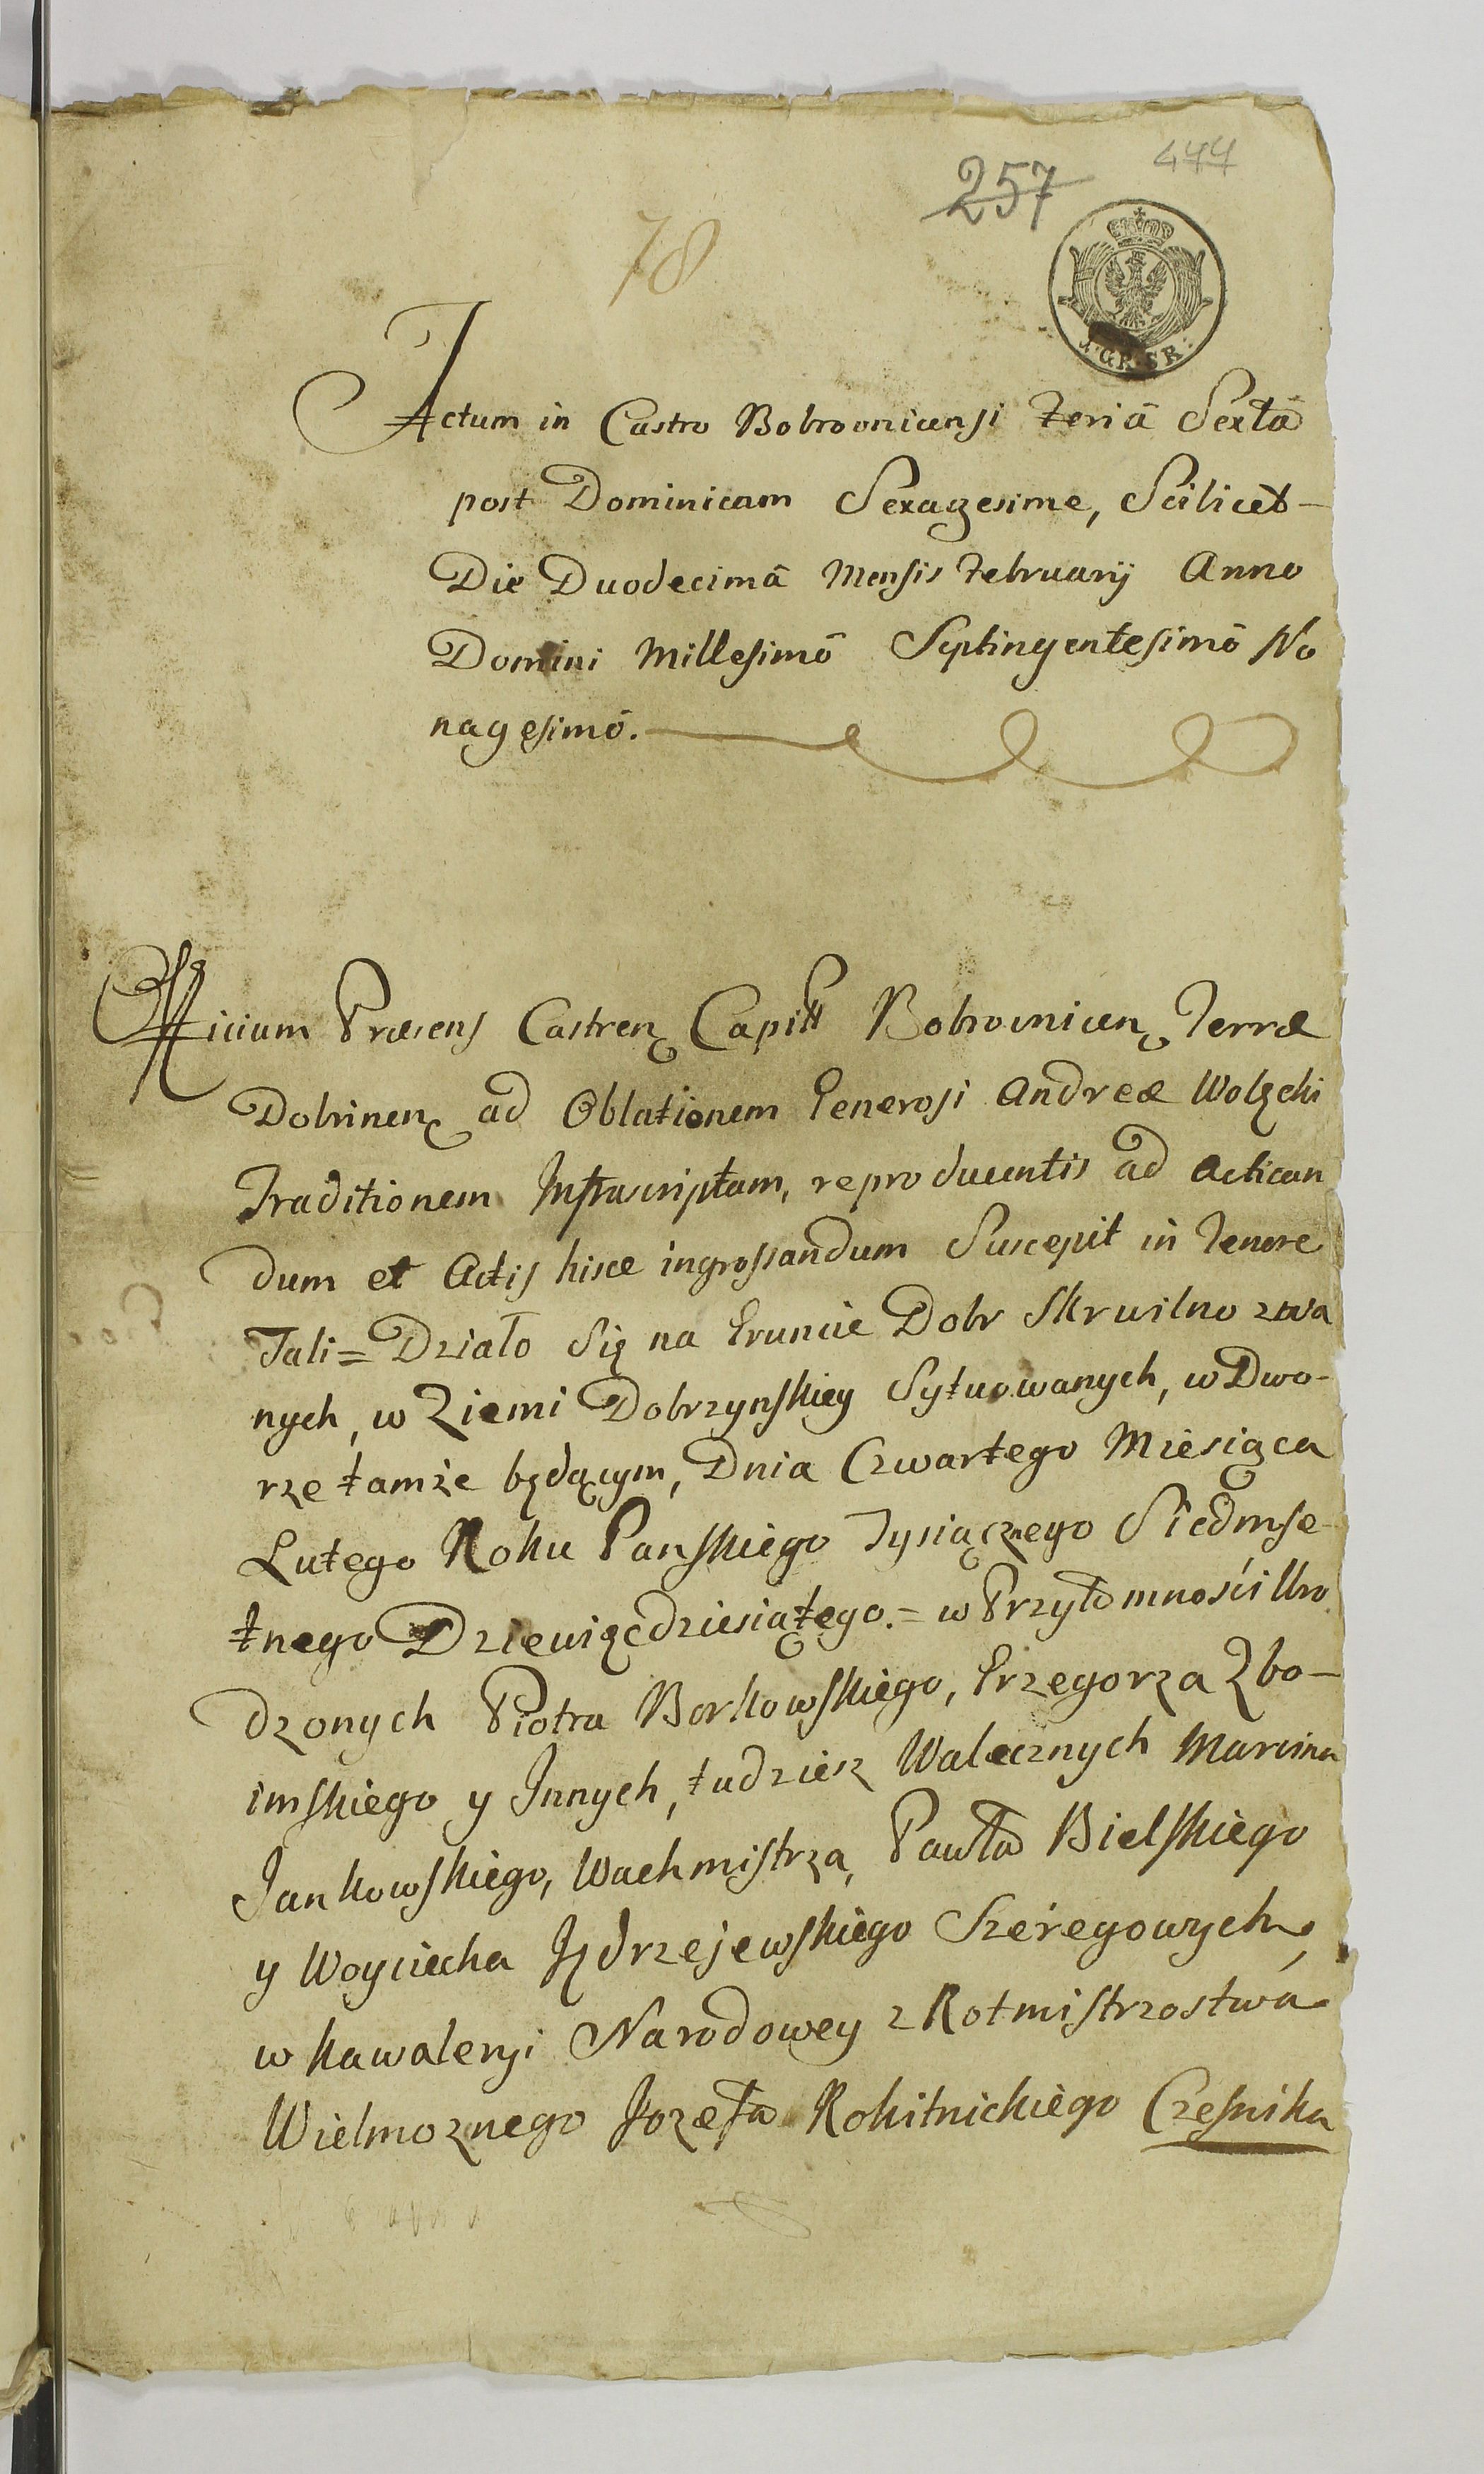 477
257
78
1. GR. SR.
Actum in Castro Bobrovnicensi Feriâ Sextâ
post Dominicam Sexagesime, Scilicet –
Die Duodecimâ Mensis Februarij Anno
Domini Millesimô Septingentesimô No
nagesimô.
Officium Præsens Castren Capitt Bobrovnicen Terræ
Dobrinen ad Oblationem Generosi Andreæ Wolzcki
Traditionem Infrascriptam, reproducentis ad Actican
dum et Actis hisce ingrossandum Suscepit in Tenore
Tali = Działo Się na Gruncie Dobr Skrwilno zwa
nych, w Ziemi Dobrzynskiey Sytuowanych, w Dwo-
rze tamże będącym, Dnia Czwartego Miesiąca
Lutego Roku Panskiego Tysiącznego Siedmse
tnego Dziewięćdziesiątego. = w Przytomności Uro
dzonych Piotra Borkowskiego, Grzegorza Zbo-
imskiego y Innych, tudziesz Walecznych Marcina
Jankowskiego, Wachmistrza, Pawła Bielskiego
y Woyciecha Jędrzejewskiego Szeregowych,
w Kawaleryi Narodowey z Rotmistrzostwa
Wielmoznego Jozefa Rokitnickiego Czesnika